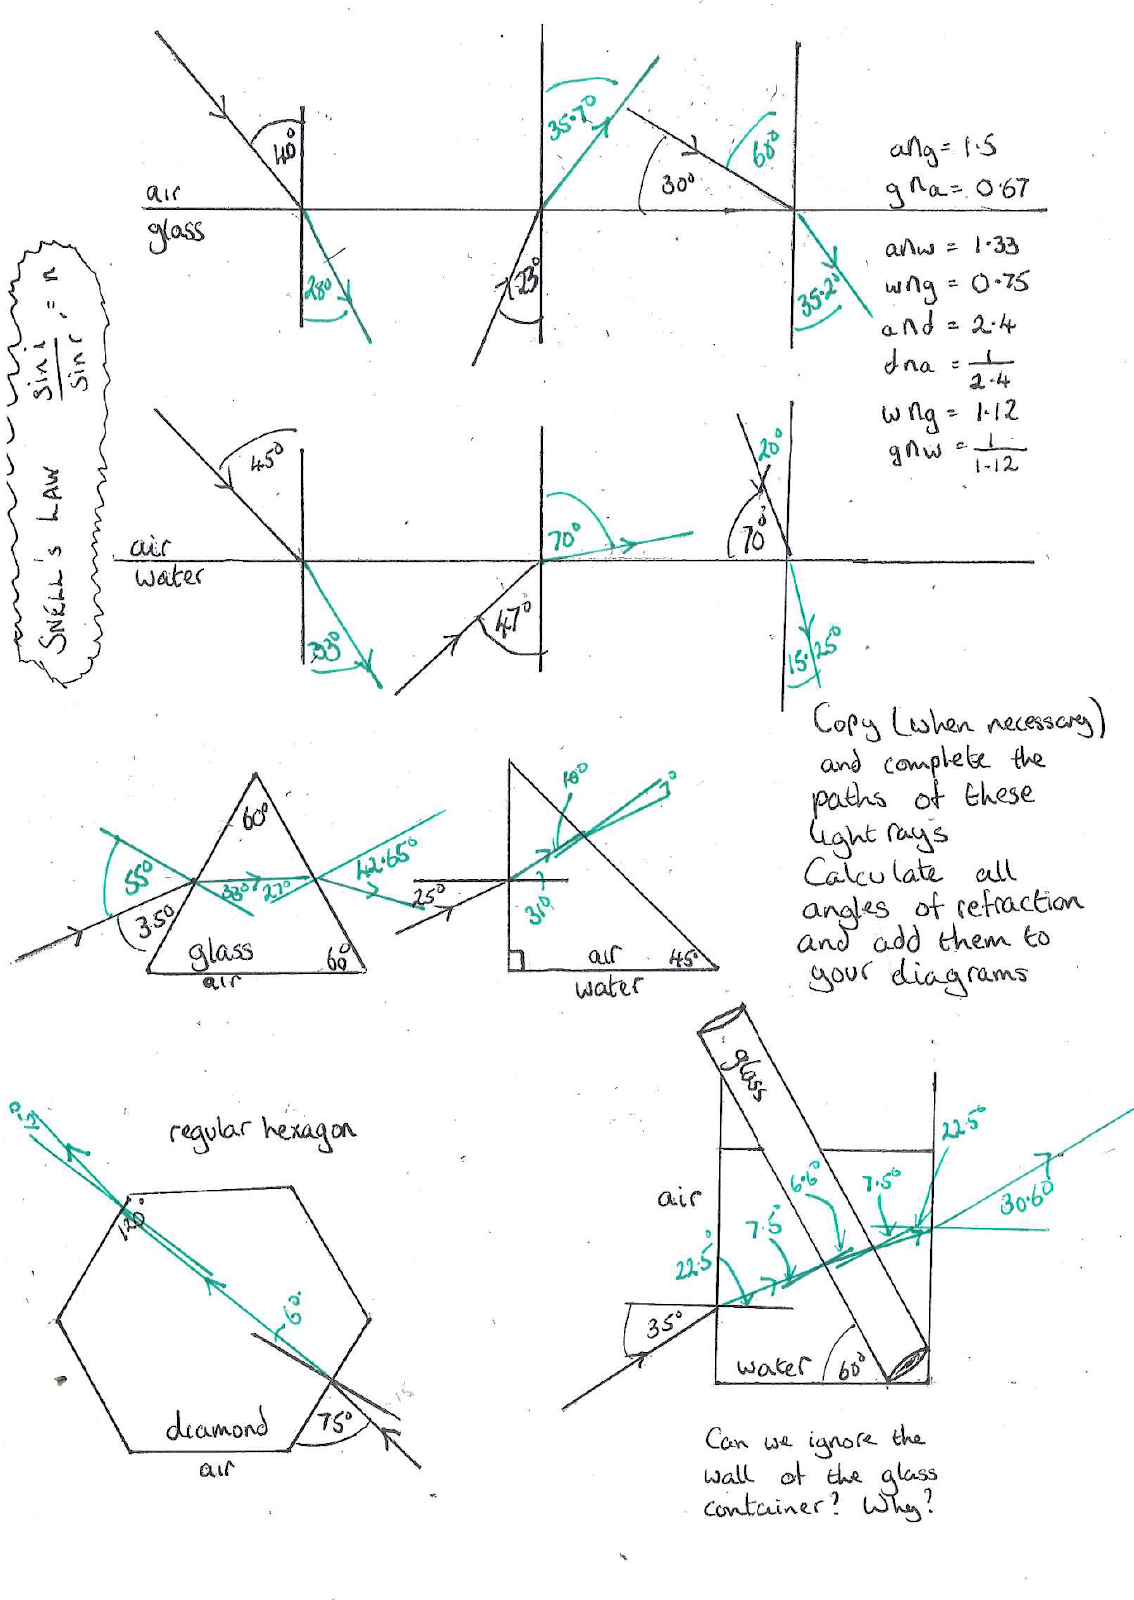 40°
35.7°
60°
30°
air
glass
28°
23°
35.2°
ang = 1.5
gna = 0.67
anw = 1.33
wng = 0.75
and = 2.4
dna = 1/2.4
wng = 1.12
gnw = 1/1.12
SNELL'S LAW sin i / sin r = n
45°
70°
20°
70°
air
water
33°
47°
15.25°
Copy (when necessary)
and complete the
paths of these
light rays
Calculate all
angles of refraction
and add them to
your diagrams
60°
55°
35°
33°
27°
42.65°
glass
60°
air
10°
7°
25°
31°
air
45°
water
regular hexagon
120°
6°
75°
15
diamond
air
glass
air
22.5°
7.5°
6.6°
7.5°
22.5°
30.6°
35°
water
60°
Can we ignore the
wall of the glass
container? Why?